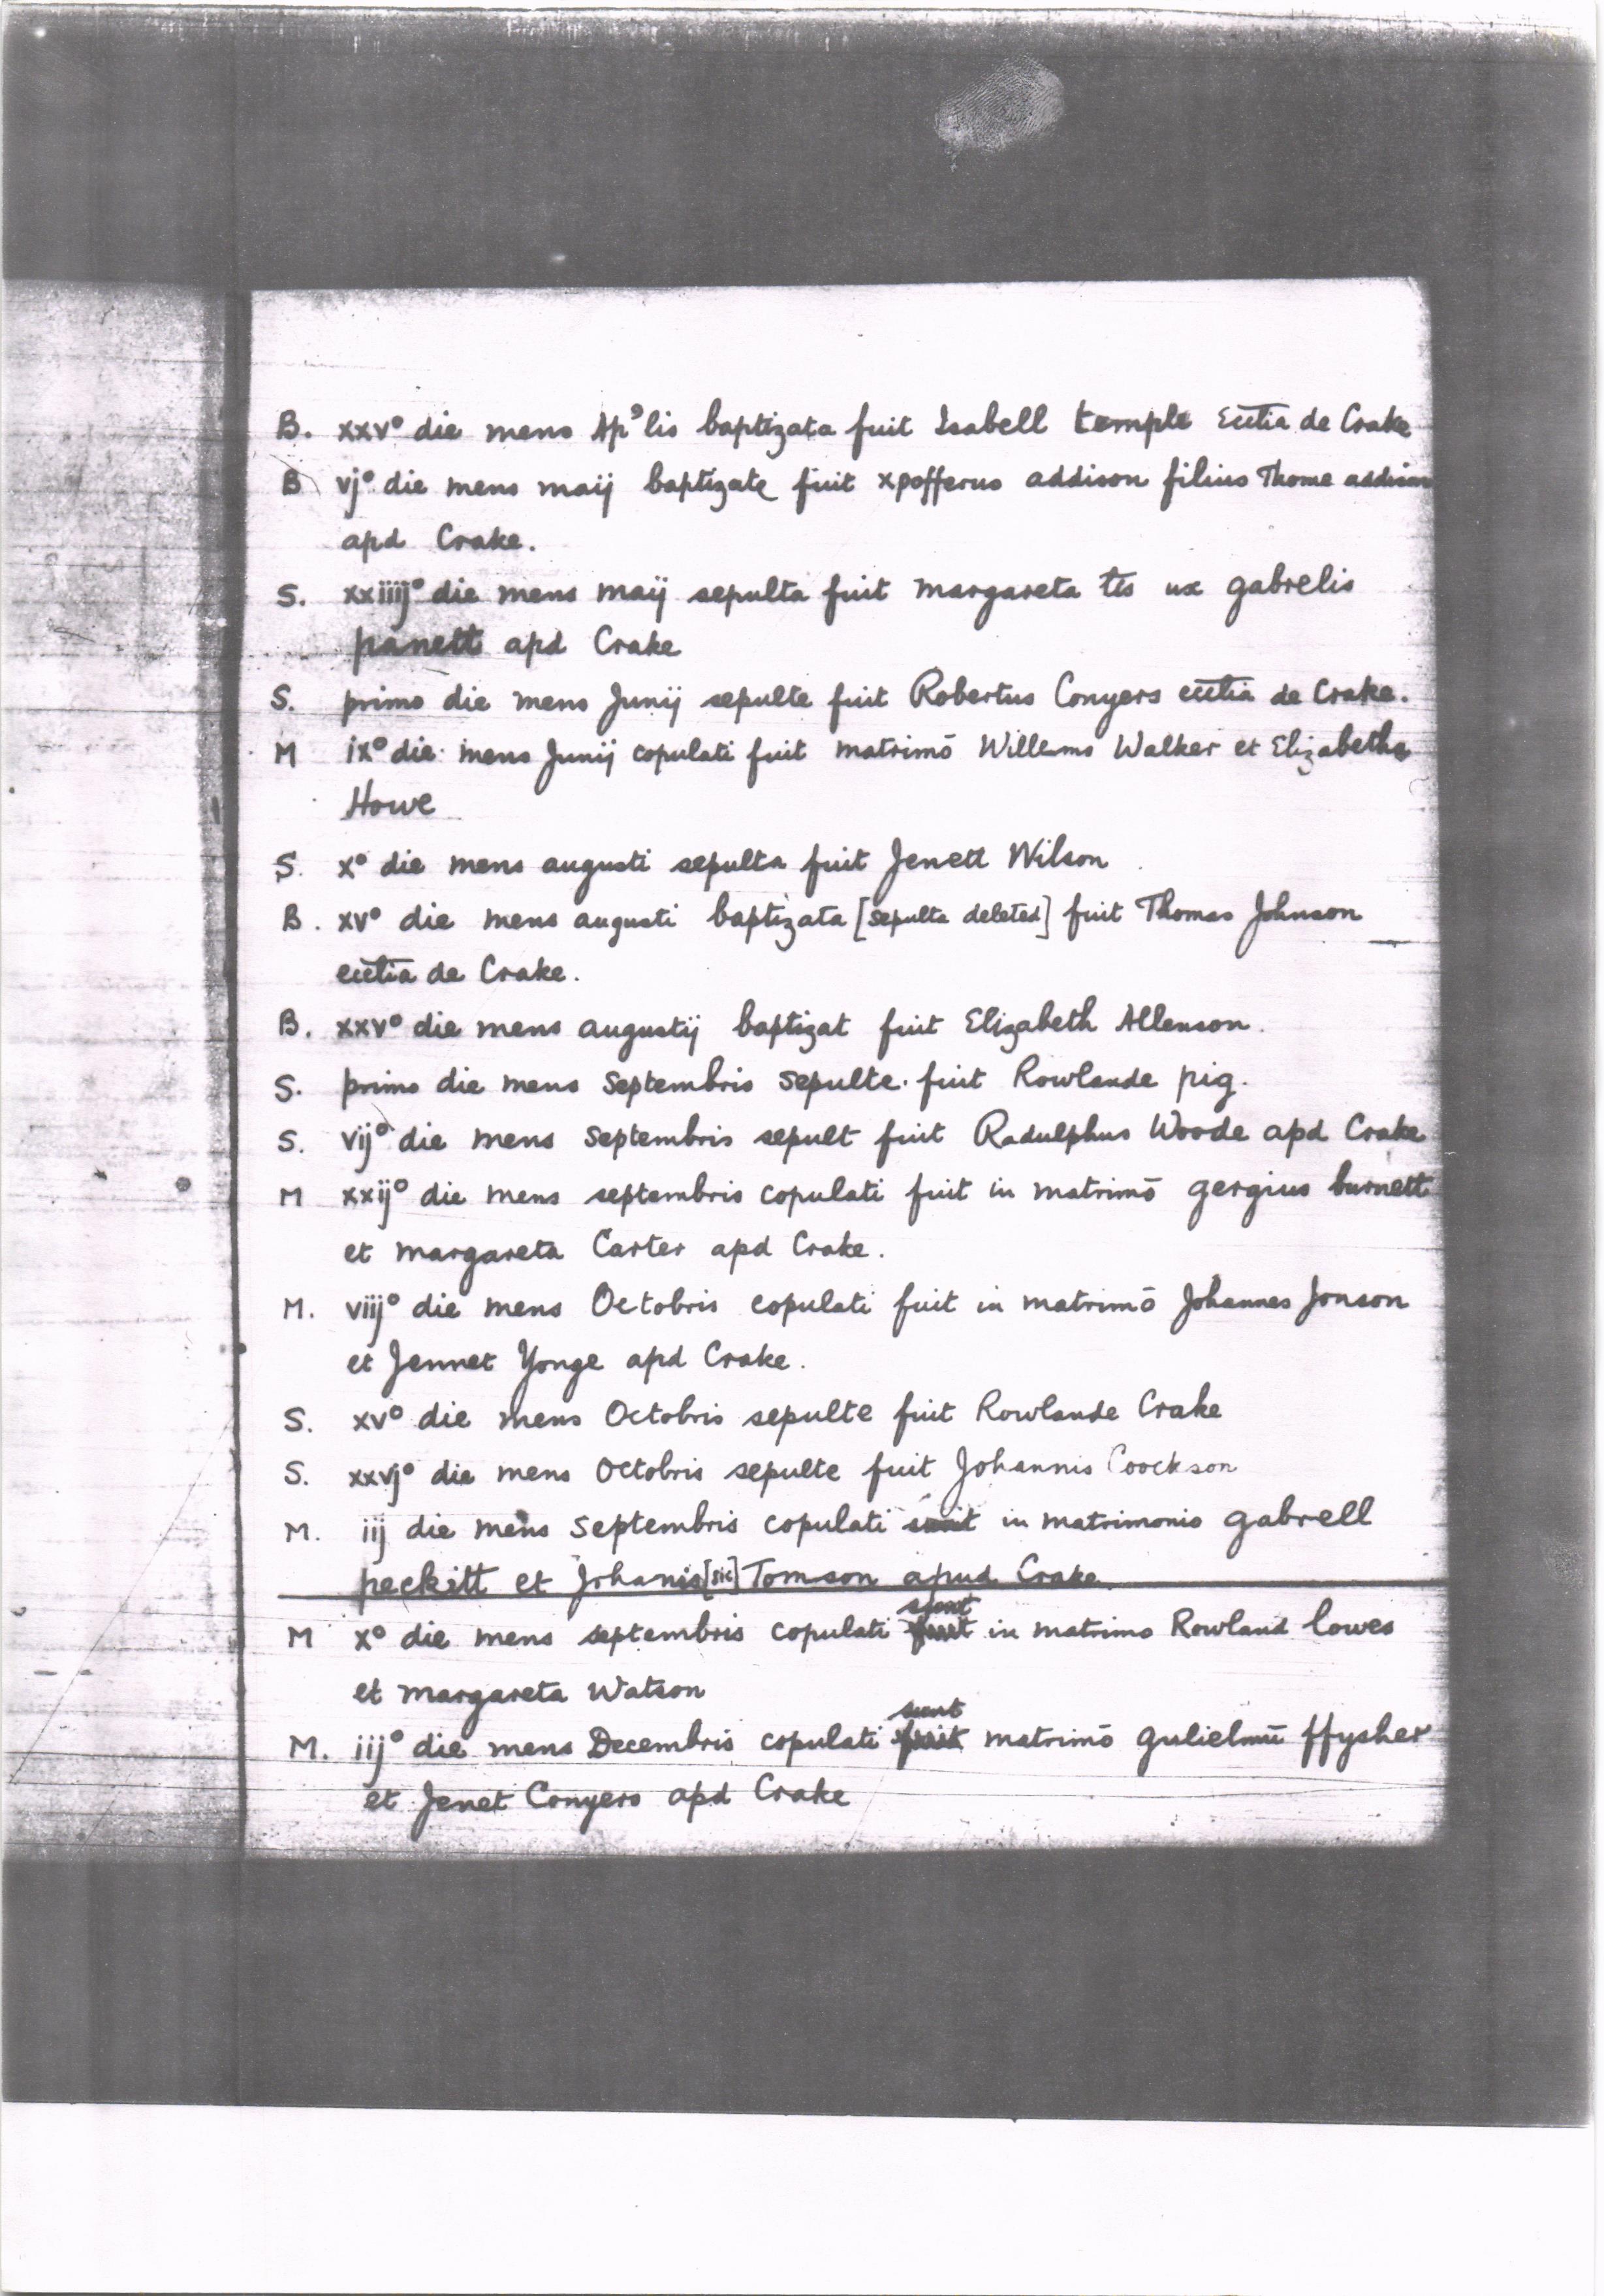 B. xxvº die mens Ap'lis baptizata fuit Isabell temple Ecctia de Crake
B vjº die mens maij baptizate fuit xpofferus addison filius Thome addison
apd Crake.
S. xxiiijº die mens maij sepulta fuit margareta tts ux gabrelis
panett apd Crake
S. primo die mens Junij sepulte fuit Robertus Conyers ecctia de Crake.
M ixº die mens Junij copulati fuit matrimō Willems Walker et Elizabetha
Howe
S. xº die mens augusti sepulta fuit Jenett Wilson
B. xvº die mens augusti baptizata [sepulta deleted] fuit Thomas Johnson
ecctia de Crake.
B. xxvº die mens augustij baptizat fuit Elizabeth Allenson.
S. primo die mens Septembris sepulte fuit Rowlande pig.
S. vijº die mens Septembris sepult fuit Radulphus Woode apd Crake
M xxijº die mens septembris copulati fuit in matrimō gergius burnett
et margareta Carter apd Crake.
M. viijº die mens Octobris copulati fuit in matrimō Johannes Jonson
et Jennet Yonge apd Crake.
S. xvº die mens Octobris sepulte fuit Rowlande Crake
S. xxvjº die mens Octobris sepulte fuit Johannis Coockson
M. iij die mens Septembris copulati sunt in matrimonio gabrell
peckitt et Johanis [sic] Tomson apud Crake
sunt
M xº die mens septembris copulati fuit in matrimo Rowland lowes
et margareta Watson
sunt
M. iijº die mens Decembris copulati fuit matrimō gulielmū ffysher
et Jenet Conyers apd Crake